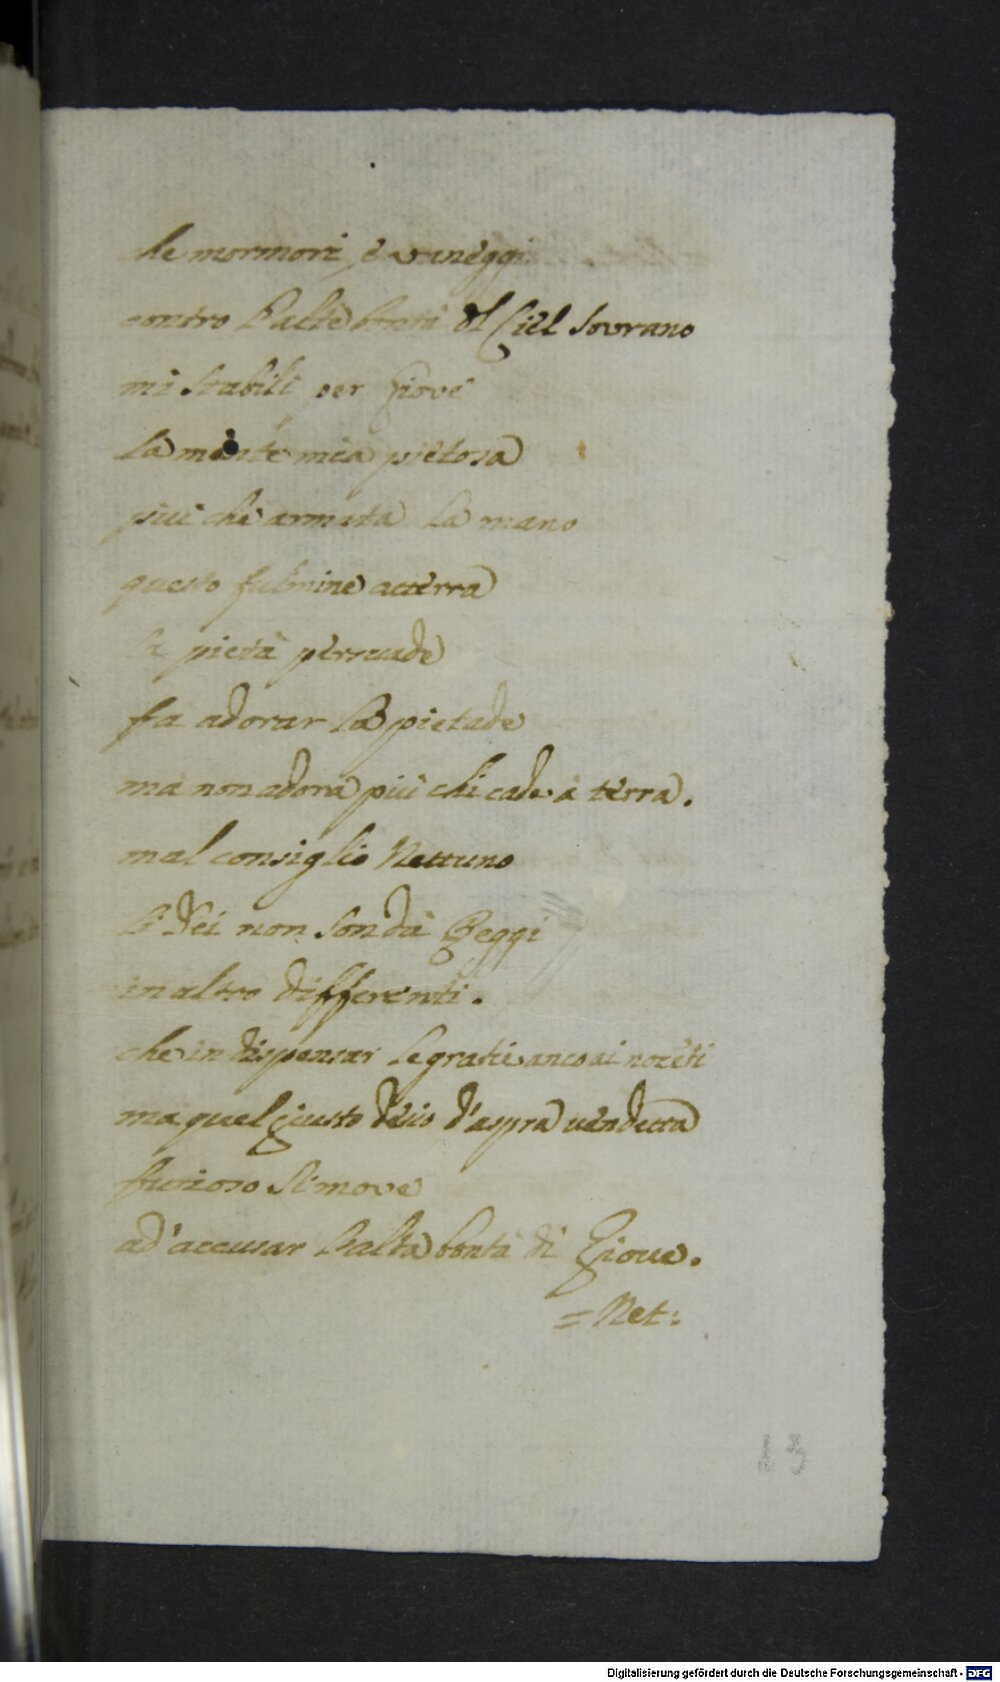 che mormori, è vaneggi
contro l'alte bontà del Ciel Sovrano
mi stabilì per Giove
la mente mia pietosa
più che armata la mano
questo fulmine atterra
la pietà persuade
fa adorar la pietade
ma non adora più chi cade à terra.
mal consiglio Nettuno
li Dei non son da Reggi
in altro differenti.
che in dispensar le gratie anco ai nocēti
ma quel giusto desio d'aspra uendetta
furioso si move
ad'accusar l'alta bontà di Gioue.
= Net:
13
Digitalisierung gefördert durch die Deutsche Forschungsgemeinschaft - DFG